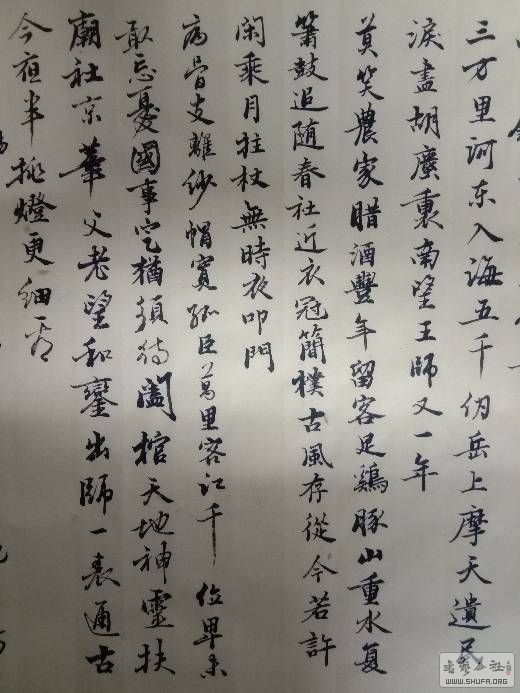 三万里河东入海五千仞岳上摩天遺民
淚盡胡塵裏南望王師又一年
莫笑農家腊酒豐年留客足鷄豚山重水复
簫鼓追随春社近衣冠簡樸古風存從今若許
閑乘月拄杖無時夜叩門
病骨支離紗帽寬孤臣萬里客江干位卑未
敢忘憂國事定猶須待闔棺天地神靈扶
廟社京華父老望和鑾出師一表通古
今夜半挑燈更細看
书艺公社
WWW.SHUFA.ORG